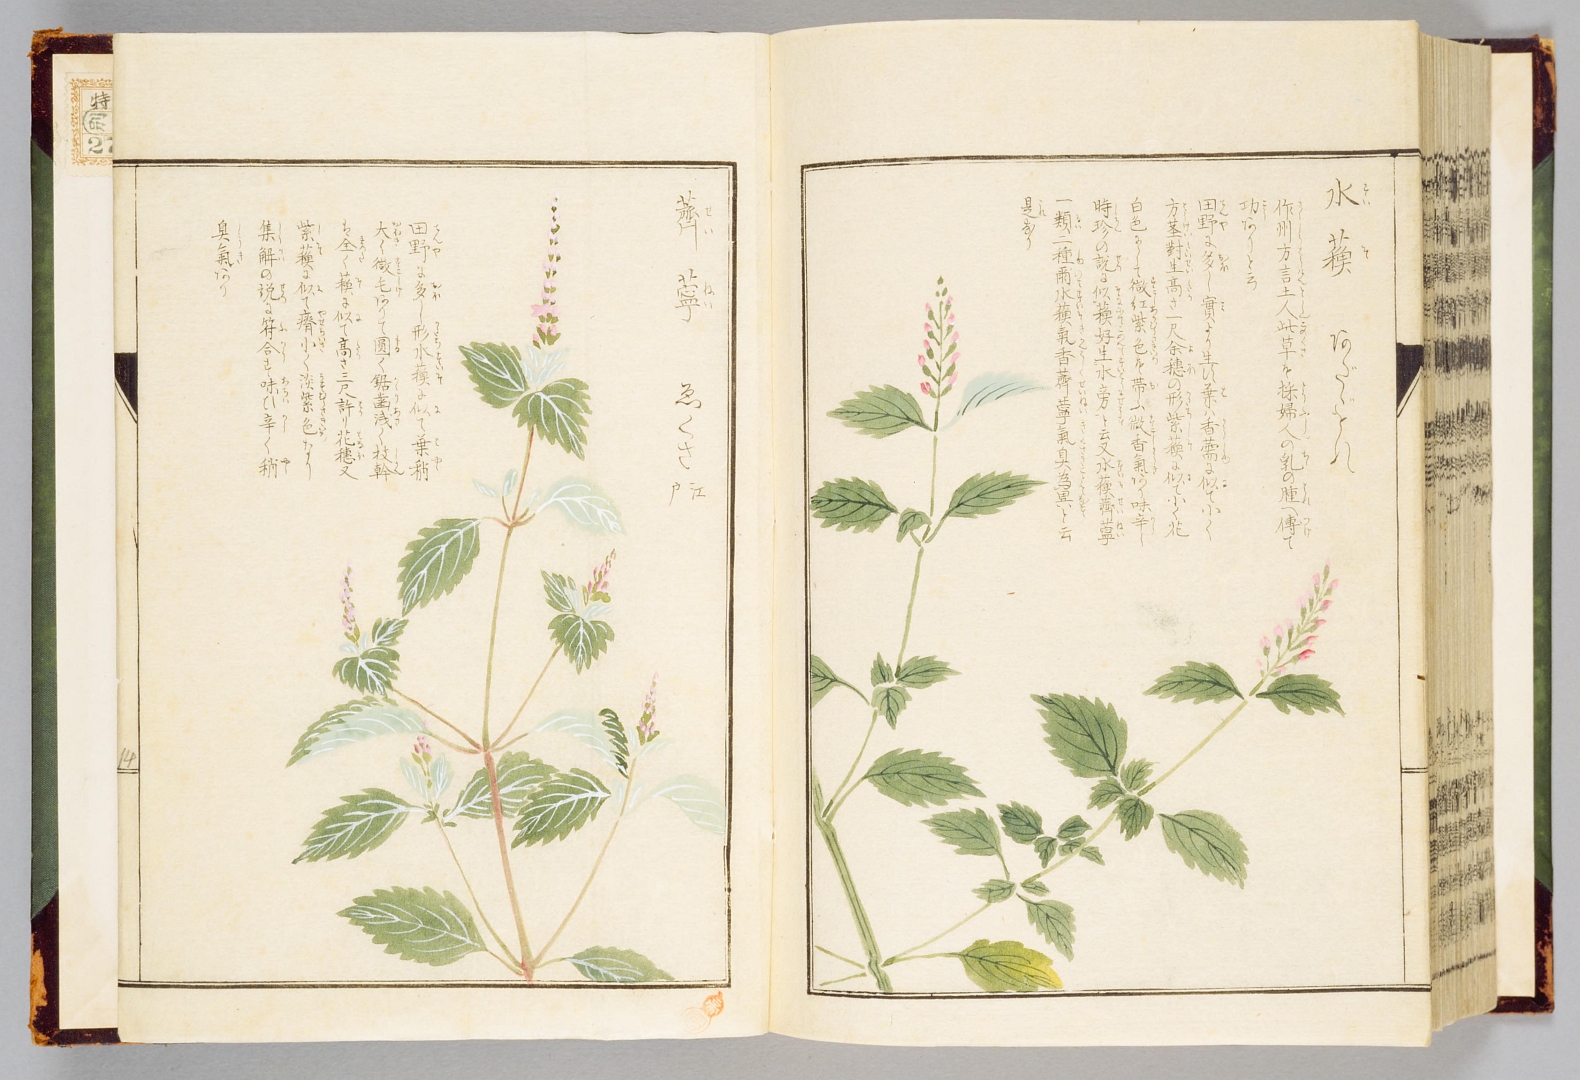 水蘓 すいそ
作州方言土人此草を採婦人の乳の腫へ傅て
功ありと云
田野に多し實より生ひ葉ハ香薷に似て小く
方茎對生高さ一尺余穂の形紫蘓に似て小く花
白色にして微紅紫色を帯ふ微香氣あり味辛し
時珍の説に似蘓好生水旁と云又水蘓薺薴
一類二種爾水蘓氣香薺薴氣臭為異と云
是なり
薺薴 せいねい
ゑくさ 江戸
田野に多し形水蘓に似て葉稍
大く微毛ありて圓く鋸齒浅く枝幹
も全く蘓に似て高さ三尺許り花穂又
紫蘓に似て瘠小く淡紫色なり
集解の説に符合す味ひ辛く稍
臭氣あり
特
27
14